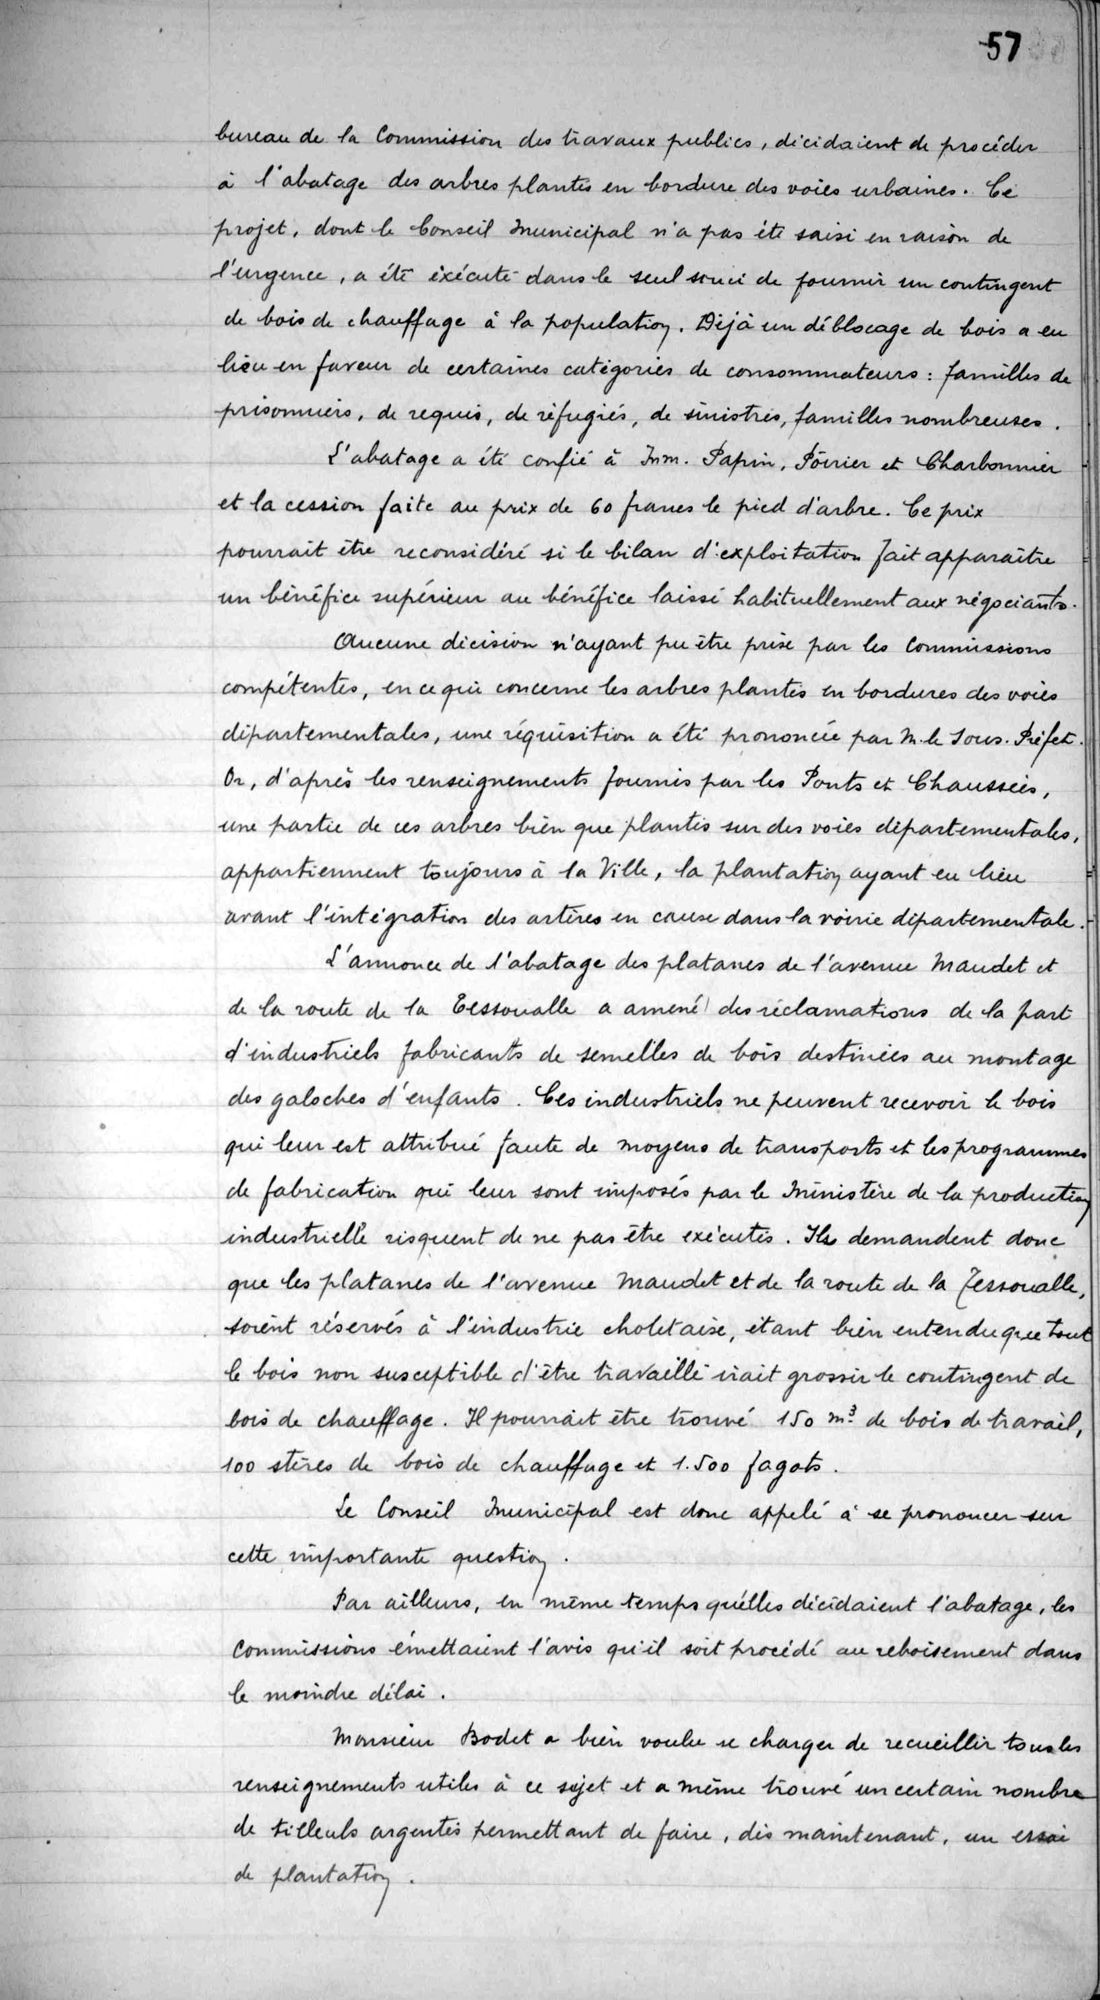 57
bureau de la Commission des travaux publics, décidaient de procéder
à l'abatage des arbres plantés en bordure des voies urbaines. Ce
projet, dont le Conseil Municipal n'a pas été saisi en raison de
l'urgence, a été éxécuté dans le seul souci de fournir un contingent
de bois de chauffage à la population. Déjà un déblocage de bois a eu
lieu en faveur de certaines catégories de consommateurs : familles de
prisonniers, de requis, de réfugiés, de sinistrés, familles nombreuses.
L'abatage a été confié à Mm. Papin, Poirier et Charbonnier
et la cession faite au prix de 60 francs le pied d'arbre. Ce prix
pourrait être reconsidéré si le bilan d'exploitation fait apparaître
un bénéfice supérieur au bénéfice laissé habituellement aux négociants.
Aucune décision n'ayant pu être prise par les Commissions
compétentes, en ce qui concerne les arbres plantés en bordures des voies
départementales, une réquisition a été prononcée par M. le Sous-Préfet.
Or, d'après les renseignements fournis par les Ponts et Chaussées,
une partie de ces arbres bien que plantés sur des voies départementales,
appartiennent toujours à la Ville, la plantation ayant eu lieu
avant l'intégration des artères en cause dans la voirie départementale.
L'annonce de l'abatage des platanes de l'avenue Maudet et
de la route de la Tessoualle a amené des réclamations de la part
d'industriels fabricants de semelles de bois destinées au montage
des galoches d'enfants. Ces industriels ne peuvent recevoir le bois
qui leur est attribué faute de moyens de transports et les programmes
de fabrication qui leur sont imposés par le Ministère de la production
industrielle risquent de ne pas être exécutés. Ils demandent donc
que les platanes de l'avenue Maudet et de la route de la Tessoualle,
soient réservés à l'industrie choletaise, étant bien entendu que tout
le bois non susceptible d'être travaillé irait grossir le contingent de
bois de chauffage. Il pourrait être trouvé 150 m³ de bois de travail,
100 stères de bois de chauffage et 1.500 fagots.
Le Conseil Municipal est donc appelé à se prononcer sur
cette importante question.
Par ailleurs, en même temps qu'elles décidaient l'abatage, les
Commissions émettaient l'avis qu'il soit procédé au reboisement dans
le moindre délai.
Monsieur Bodet a bien voulu se charger de recueillir tous les
renseignements utiles à ce sujet et a même trouvé un certain nombre
de tilleuls argentés permettant de faire, dès maintenant, un essai
de plantation.